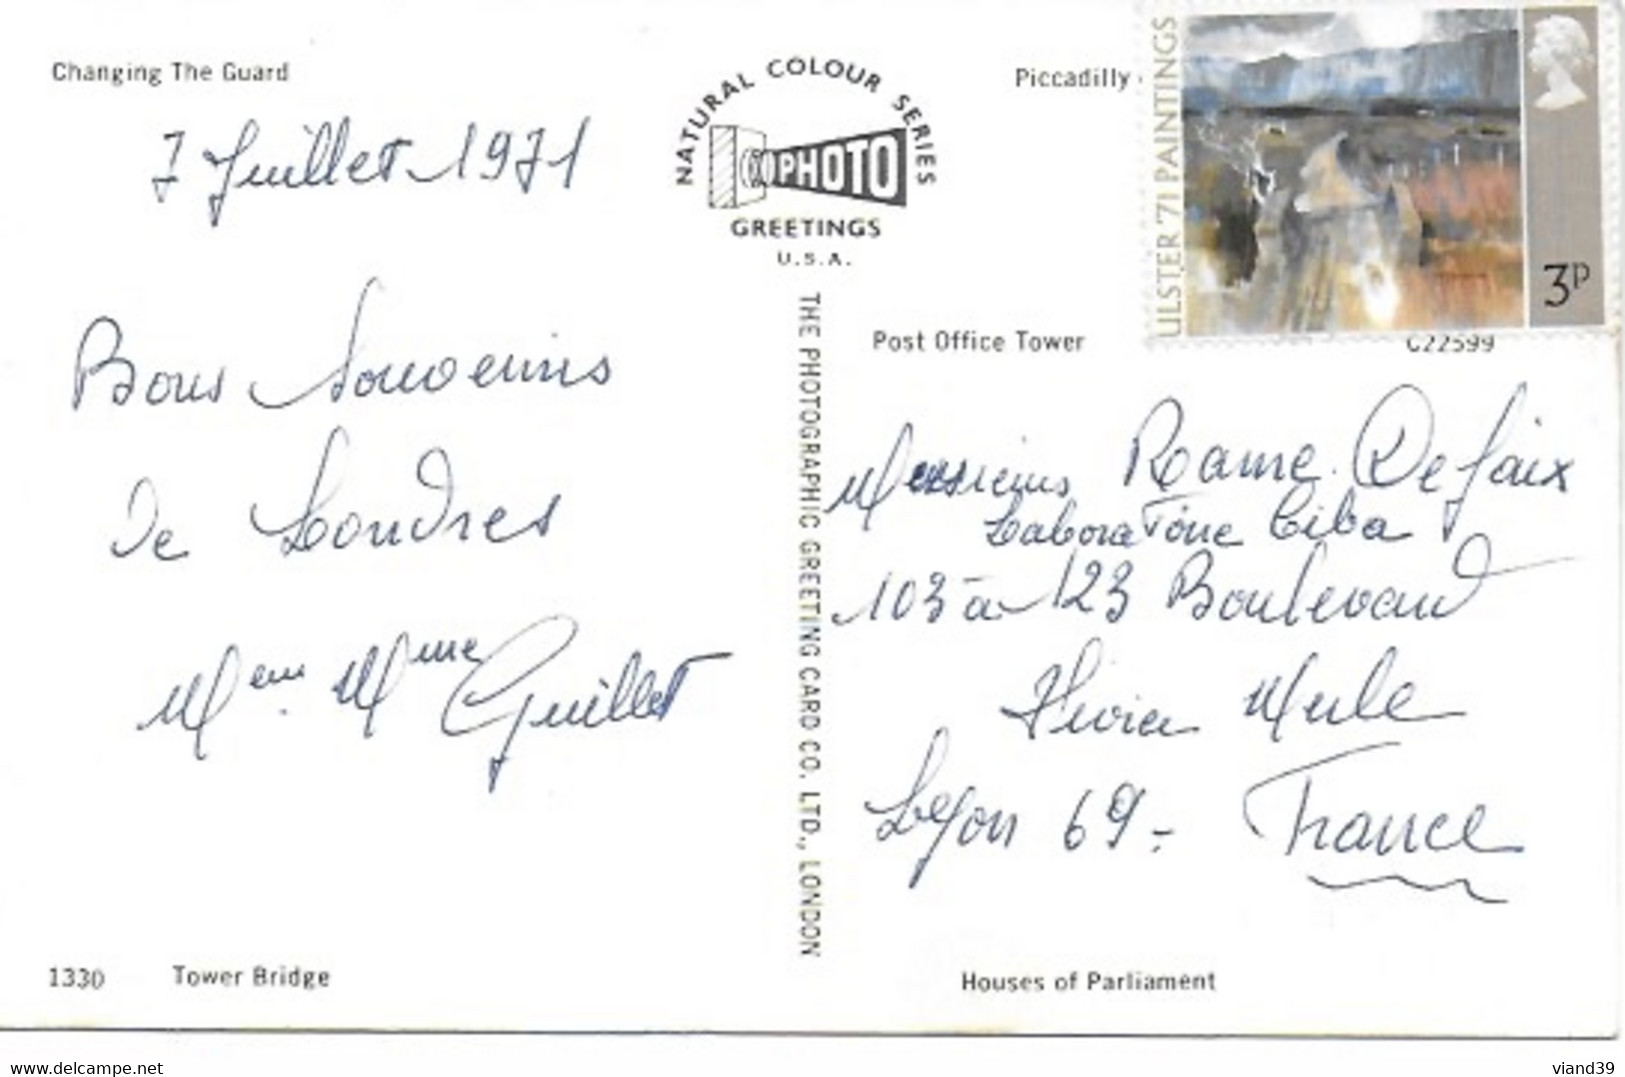 Changing The Guard
7 Juillet 1971
Bons Souvenirs
de Londres
M. et Mme Guillet
1330 Tower Bridge
NATURAL COLOUR SERIES
PHOTO
GREETINGS
U.S.A.
THE PHOTOGRAPHIC GREETING CARD CO. LTD., LONDON
Piccadilly
ULSTER '71 PAINTINGS
3P
Post Office Tower
C22599
Messieurs Rame. Defaix
Laboratoire Ciba
103 à 123 Boulevard
Vivier Merle
Lyon 69 - France
Houses of Parliament
www.delcampe.net
viand39